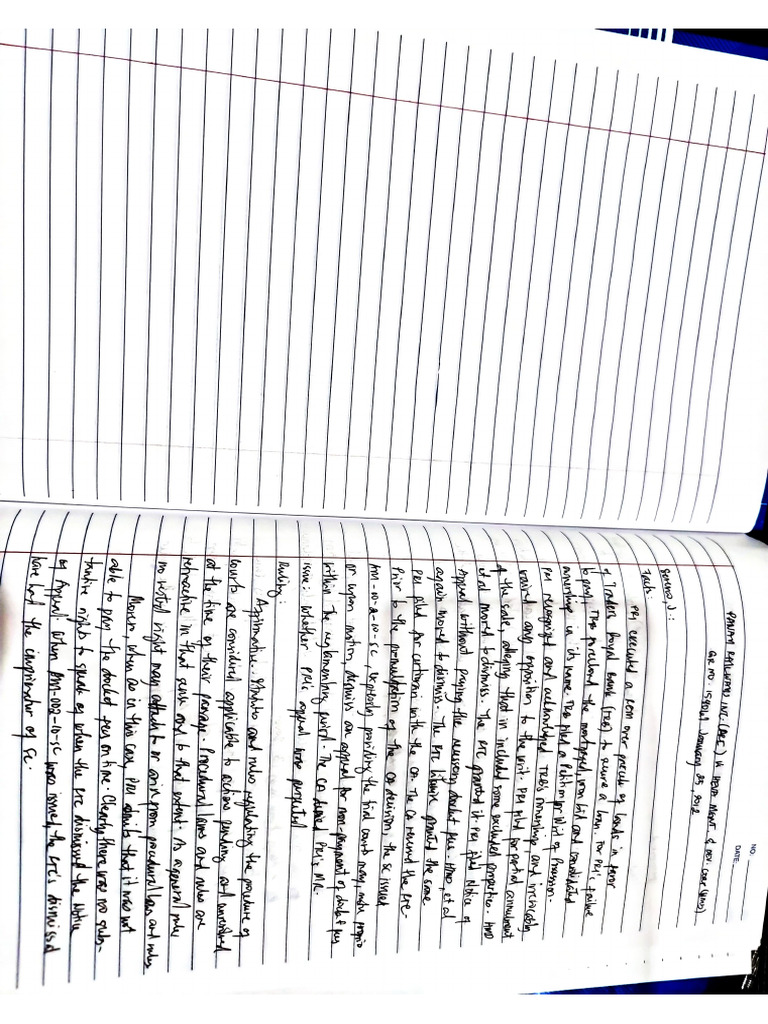 NO.
DATE
PANAY RAILWAYS INC. (PRI) v. HEVA MGMT. & DEV. CORP. (HMD)
G.R. NO. 154061 January 25, 2012
Sereno, J.:
Facts:
PRI executed a REM over parcels of lands in favor
of Traders Royal Bank (TRB) to secure a loan. For PRI's failure
to pay, TRB foreclosed the mortgaged, won bid and consolidated
ownership in its name. TRB filed a Petition for Writ of Possession.
PRI recognized and acknowledged TRB's ownership and irrevocably
waived any opposition to the writ. PRI filed for partial annulment
of the sale, alleging that in included some excluded properties. HMD
et al moved to dismiss. The RTC granted it. PRI filed Notice of
Appeal without paying the necessary docket fees. HMD, et al
again moved to dismiss. The RTC likewise granted the same
PRI filed for certiorari with the CA. The CA the RTC.
Prior to the promulgation of the CA decision, the SC issued
AM-00-2-10-SC, expressly providing the trial courts may, motu proprio
or upon motion, dismiss an appeal for non-payment of docket fees
within the reglementary period. The CA denied PRI's MR.
Issue: Whether PRI's appeal was perfected
Ruling:
Affirmative. Statutes and rules regulating the procedure of
courts are considered applicable to actions pending and unresolved
at the time of their passage. Procedural laws and rules are
retroactive in that sense and to that extent. As a general rule,
no vested right may attach to or arise from procedural laws and rules
Moreso, when as in this case, PRI admits that it was not
able to pay the docket fees on time. Clearly there was no subs-
tantive rights to speak of when the RTC dismissed the Notice
of Appeal. When AM-002-10-SC was issued, the RTC's dismissal
have had the imprimatur of SC.